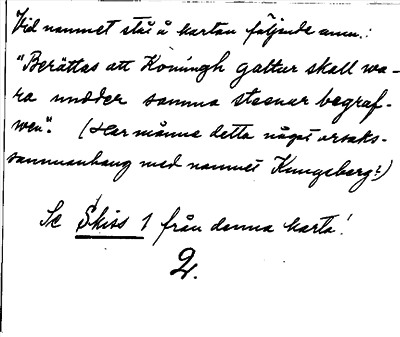 Vid namnet står å kartan följande anm.:
"Berättas att Koningh gattur skall wa-
ra undder samma steenar begraf-
wen". (Har månne detta något orsaks-
sammanhang med namnet Kungsberg?)
Se Skiss 1 från denna karta!
2.